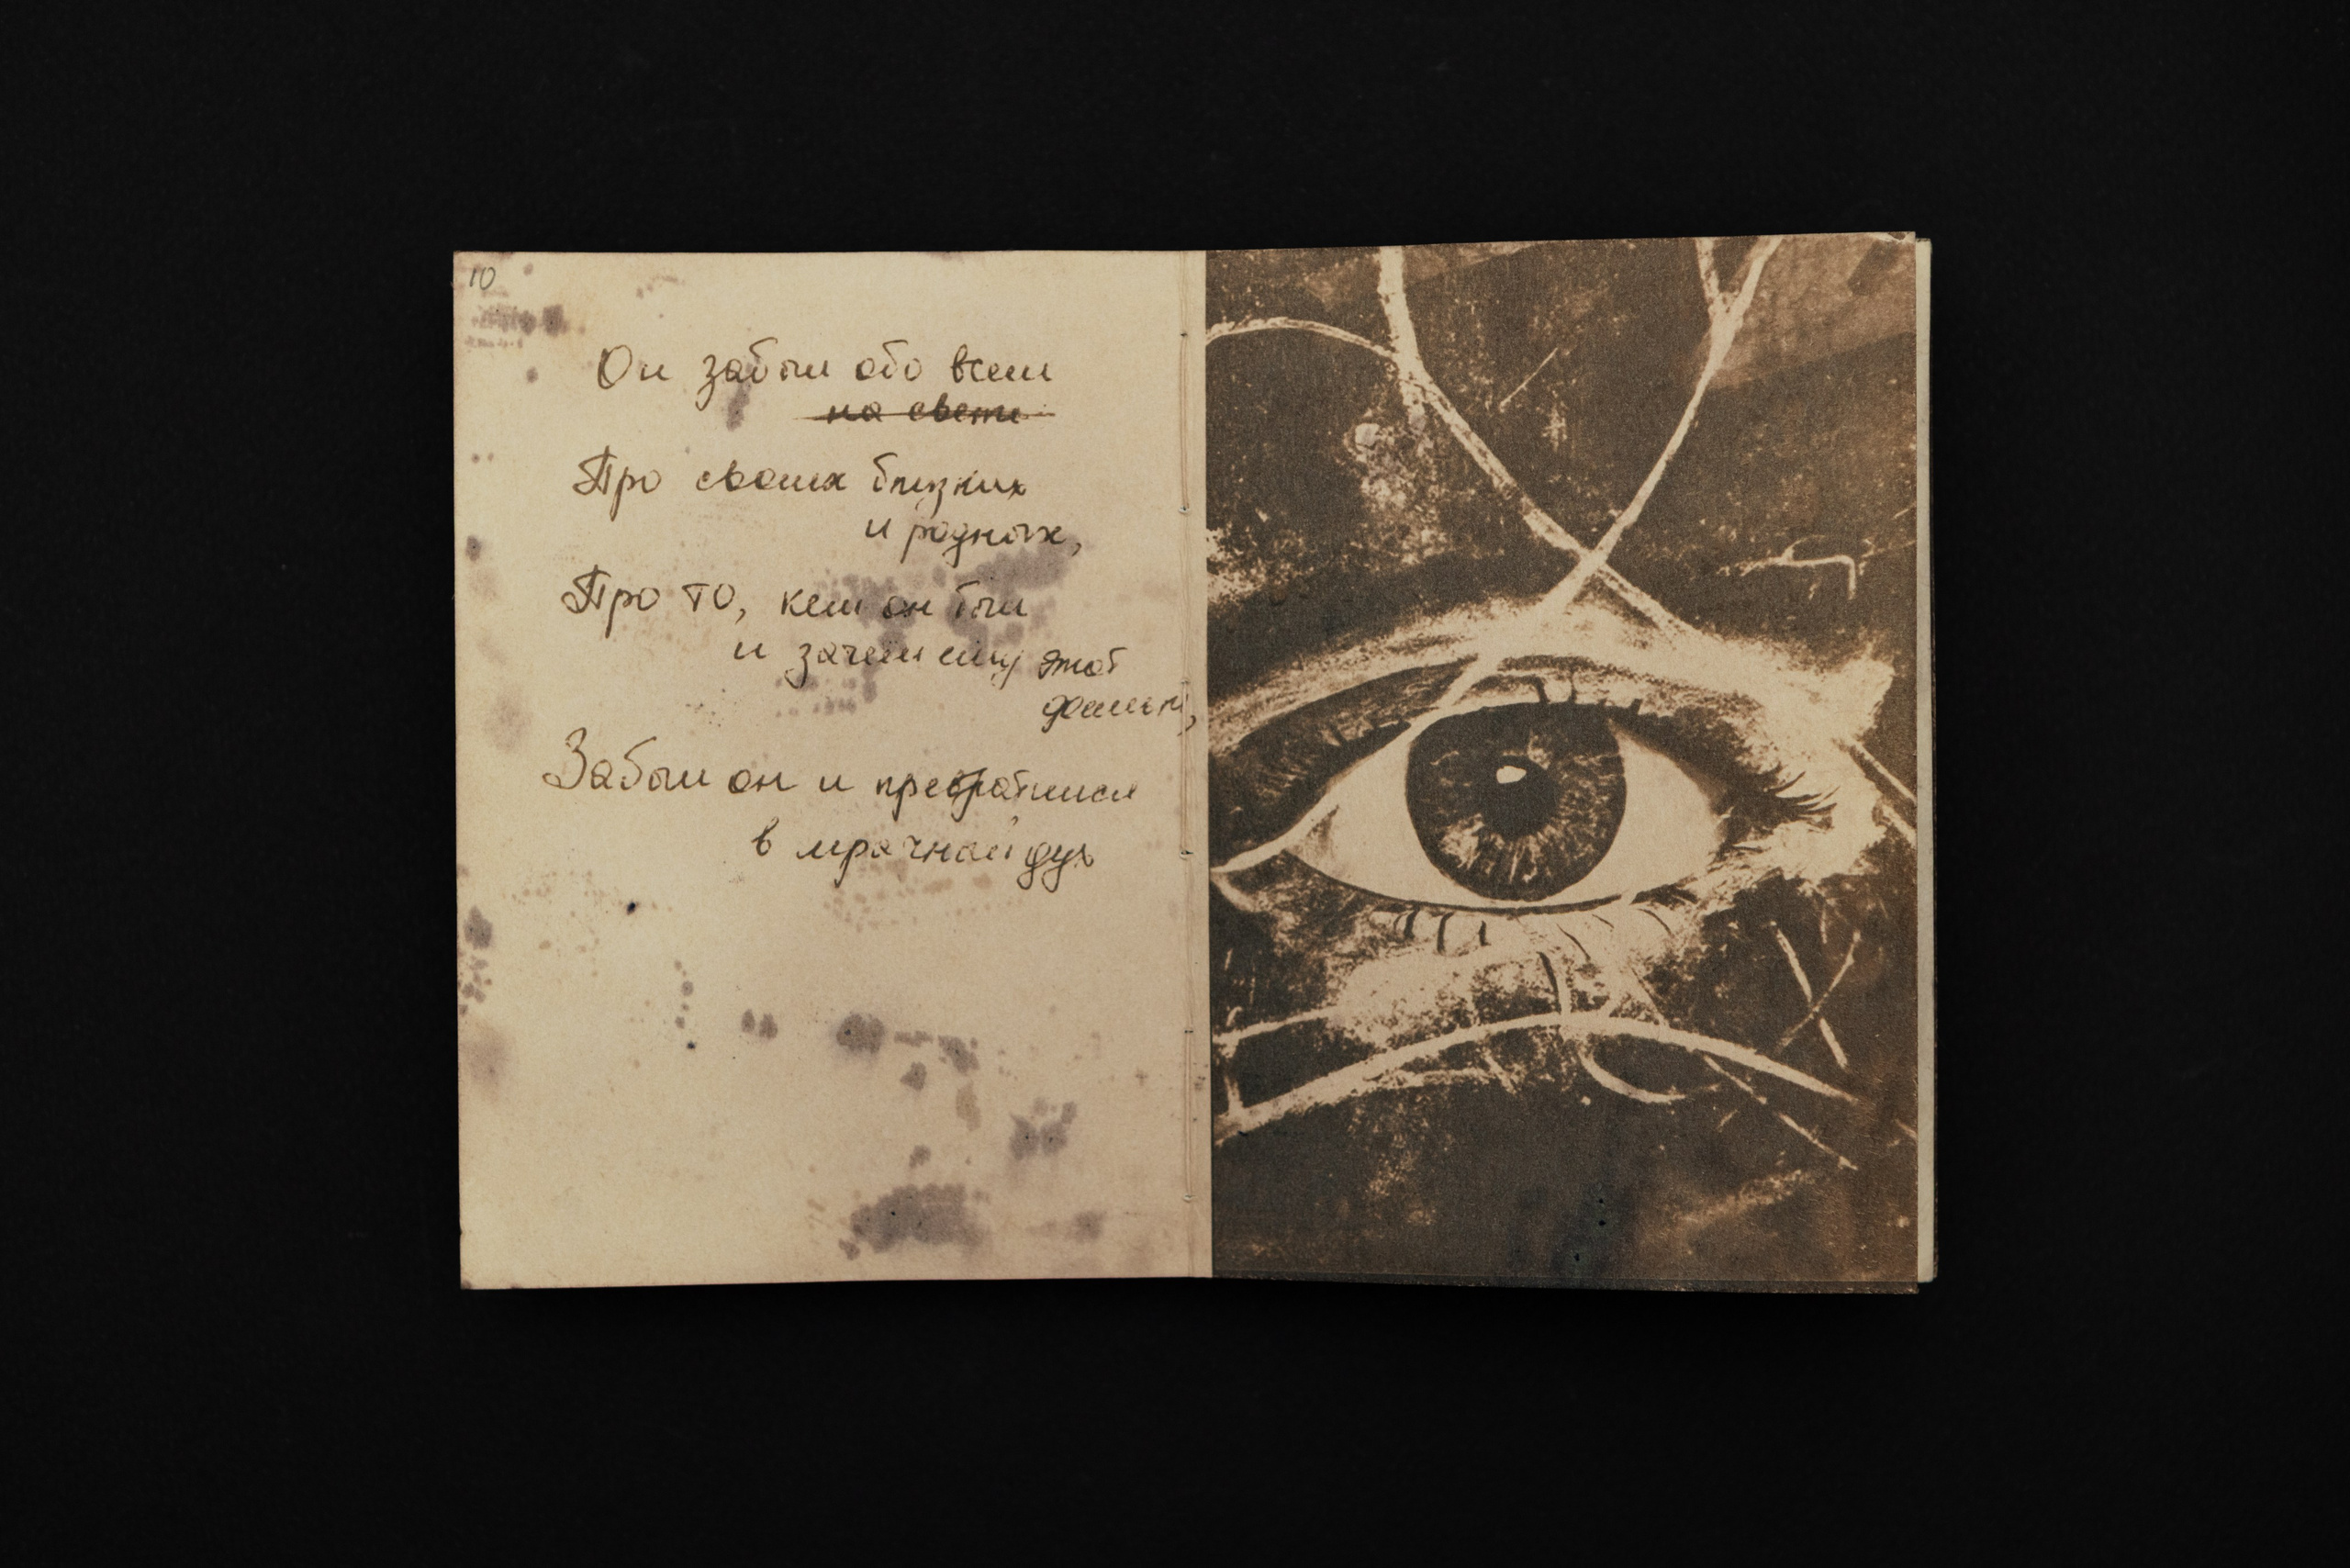 10
Он забыл обо всем
на свете
Про своих близких
и родных,
Про то, кем он был
и зачем ему этот
домик,
Забыл он и превратился
в мрачный дух